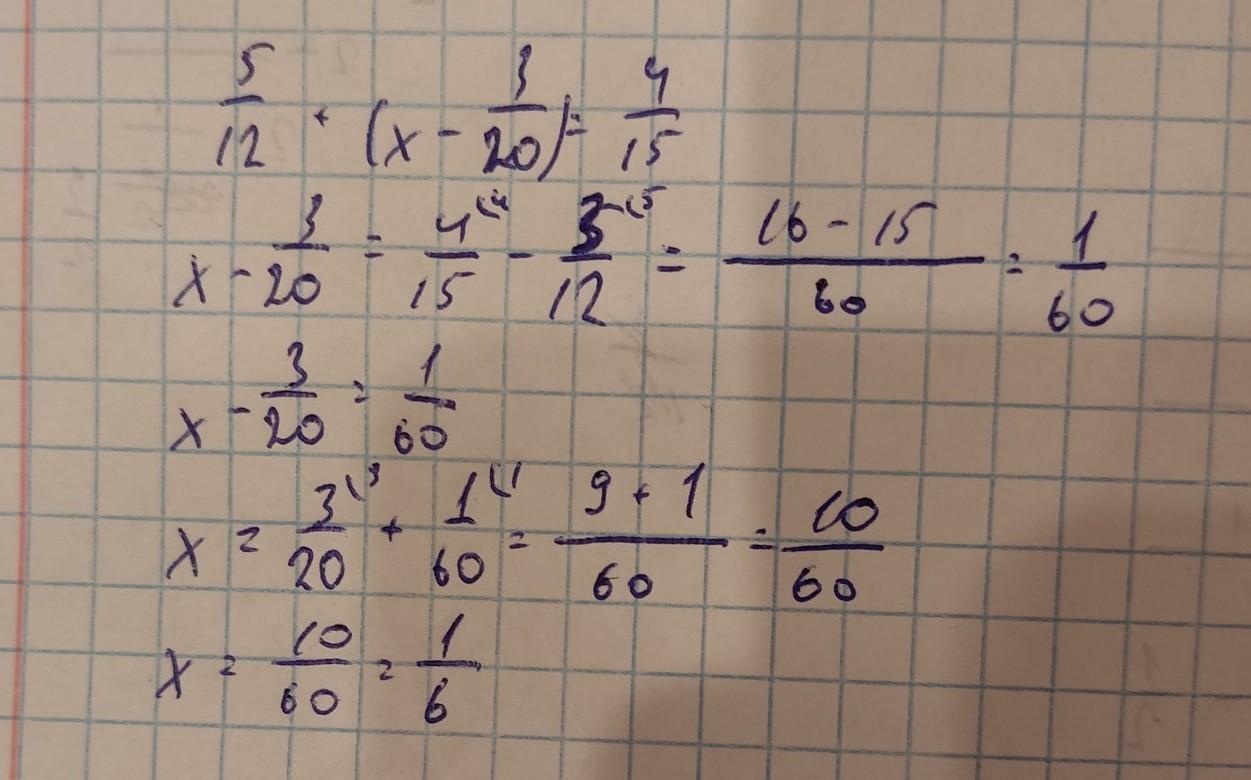 5/12 + (x - 3/20) = 4/15
x - 3/20 = 4⁽⁴/15 - 3⁽⁵/12 = (16 - 15)/60 = 1/60
x - 3/20 = 1/60
x = 3⁽³/20 + 1⁽¹/60 = (9 + 1)/60 = 10/60
x = 10/60 = 1/6